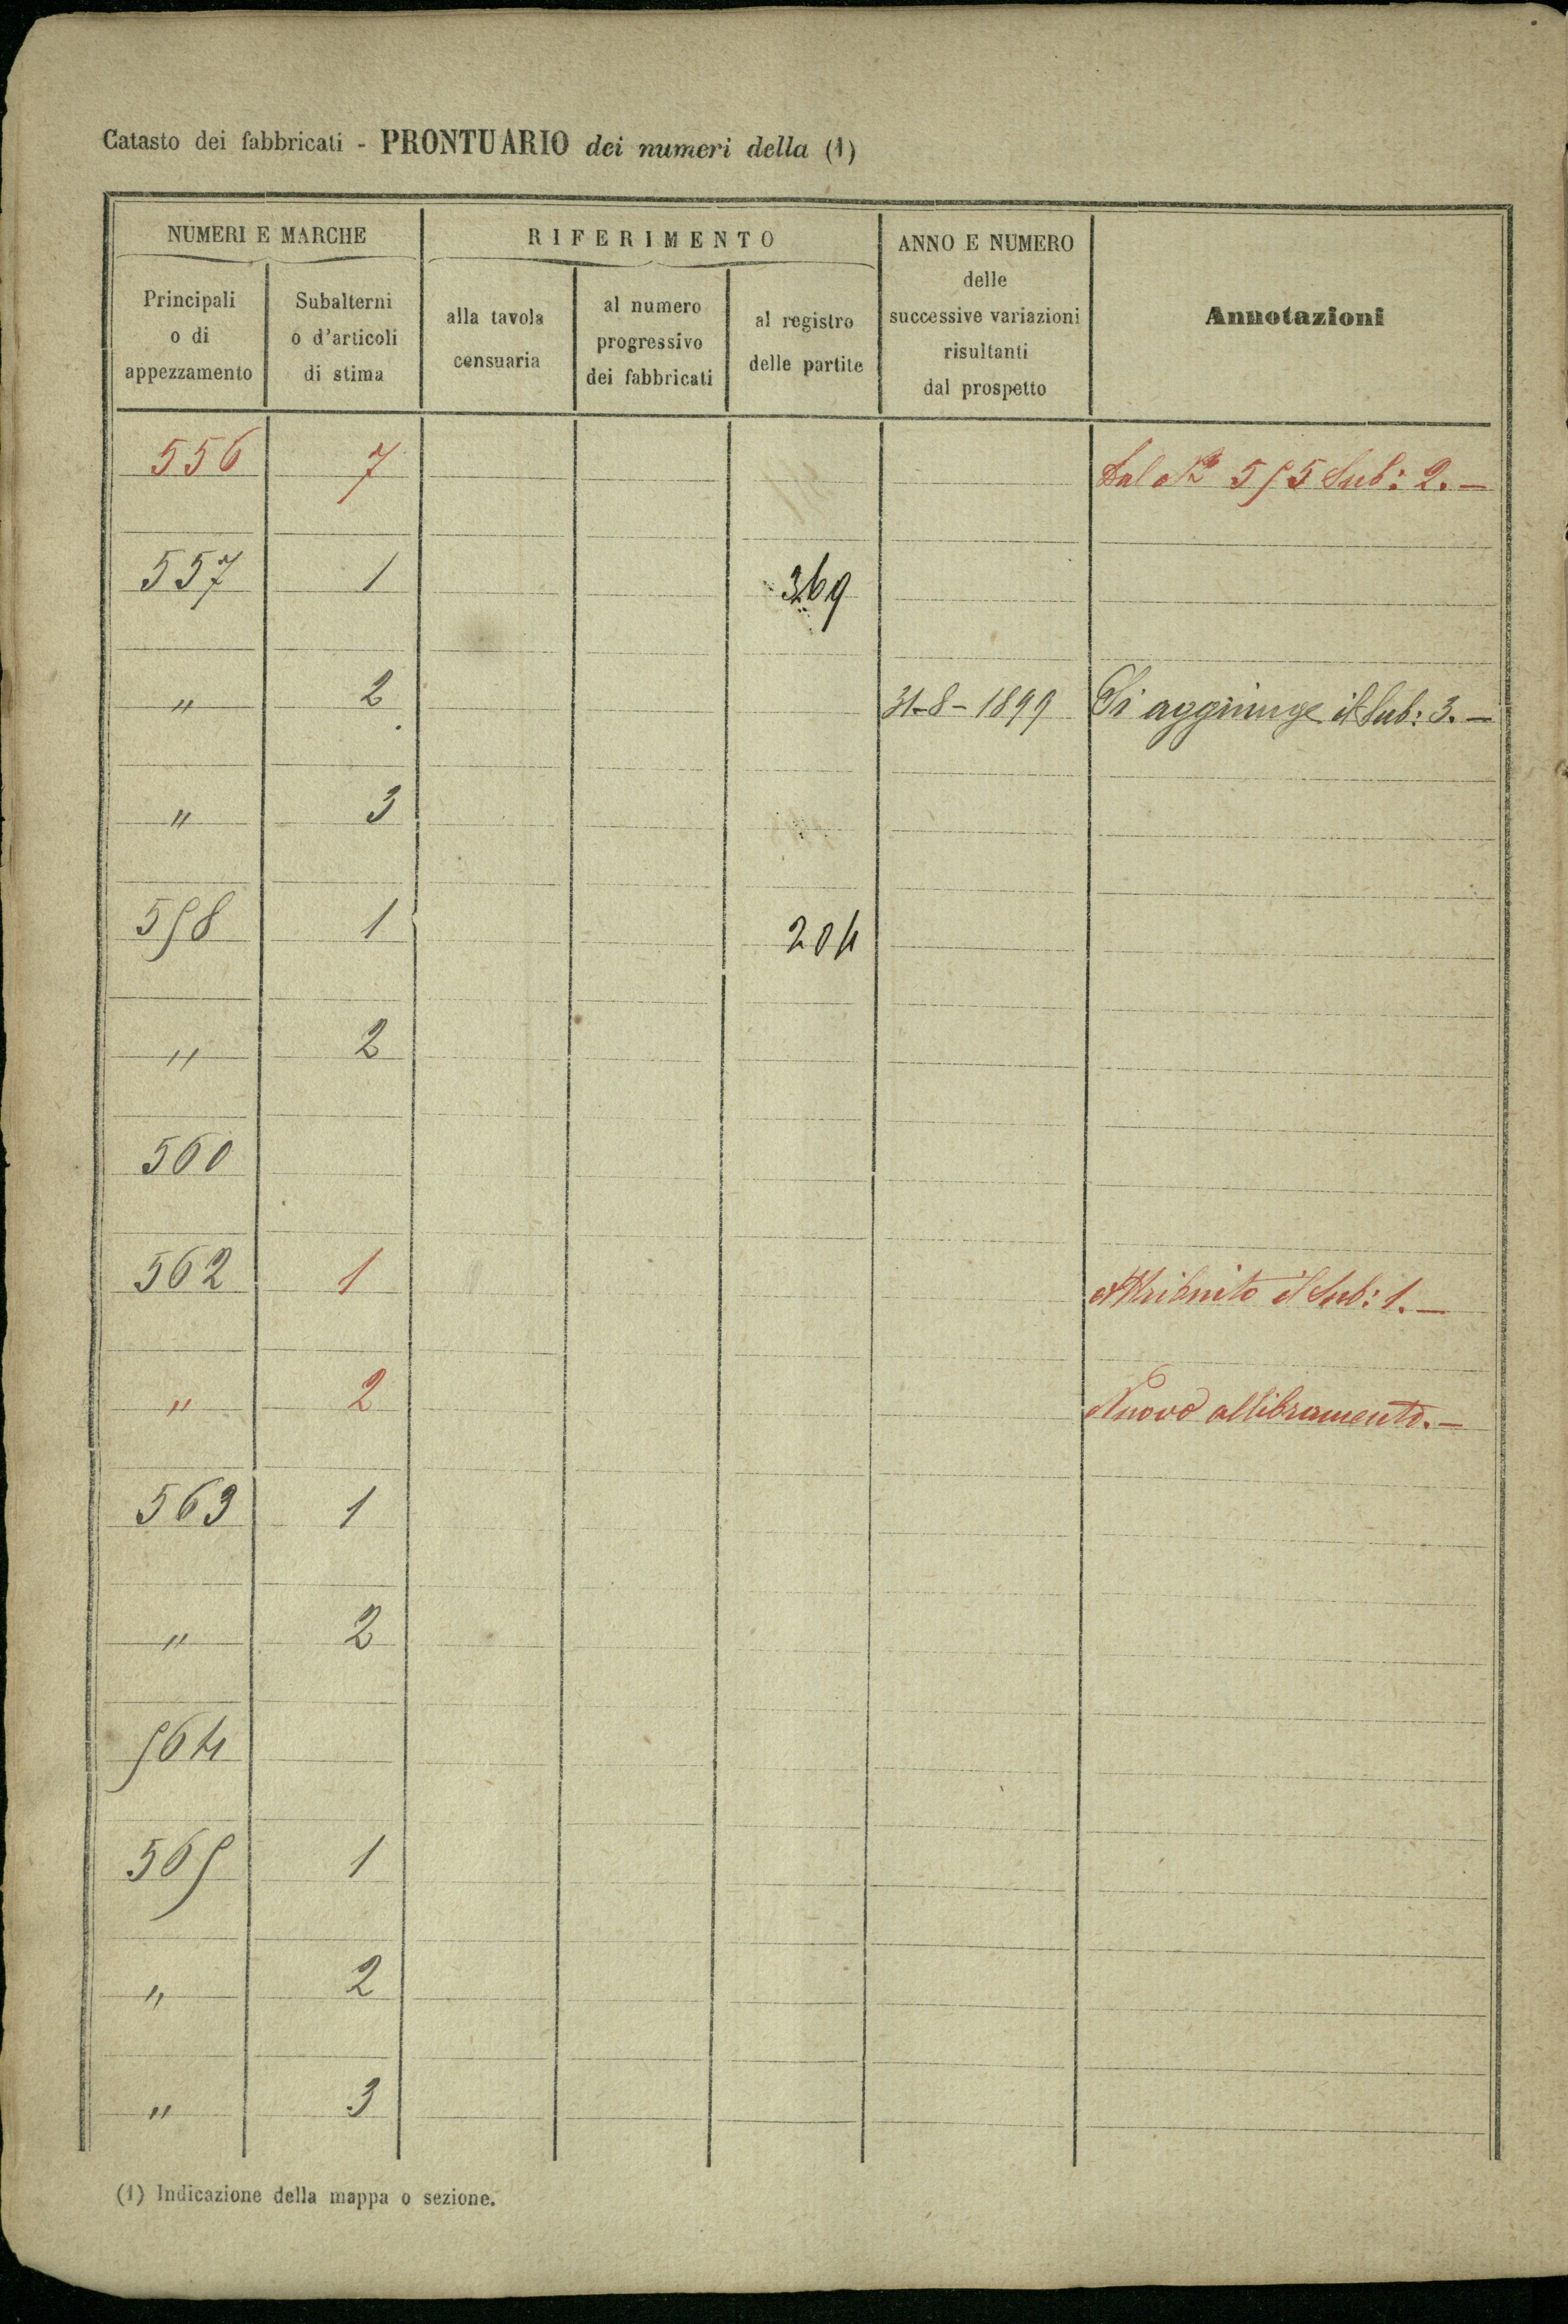 Catasto dei fabbricati - PRONTUARIO dei numeri della (1)
NUMERI E MARCHE
RIFERIMENTO
ANNO E NUMERO
delle
successive variazioni
risultanti
dal prospetto
Annotazioni
Principali
o di
appezzamento
Subalterni
o d'articoli
di stima
alla tavola
censuaria
al numero
progressivo
dei fabbricati
al registro
delle partite
556 7 Dal No 555 Sub: 2. —
557 1 369
" 2 31-8-1899 Si aggiunge il Sub: 3. —
" 3
558 1 204
" 2
560
562 1 Attribuito il Sub: 1. —
" 2 Nuovo allibramento. —
563 1
" 2
564
565 1
" 2
" 3
(1) Indicazione della mappa o sezione.